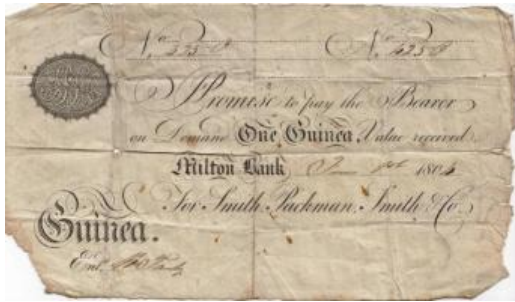 No No
I Promise to pay the Bearer
on Demand One Guinea Value received
Milton Bank 180
For Smith, Packman, Smith & Co.
Guinea.
Entd.